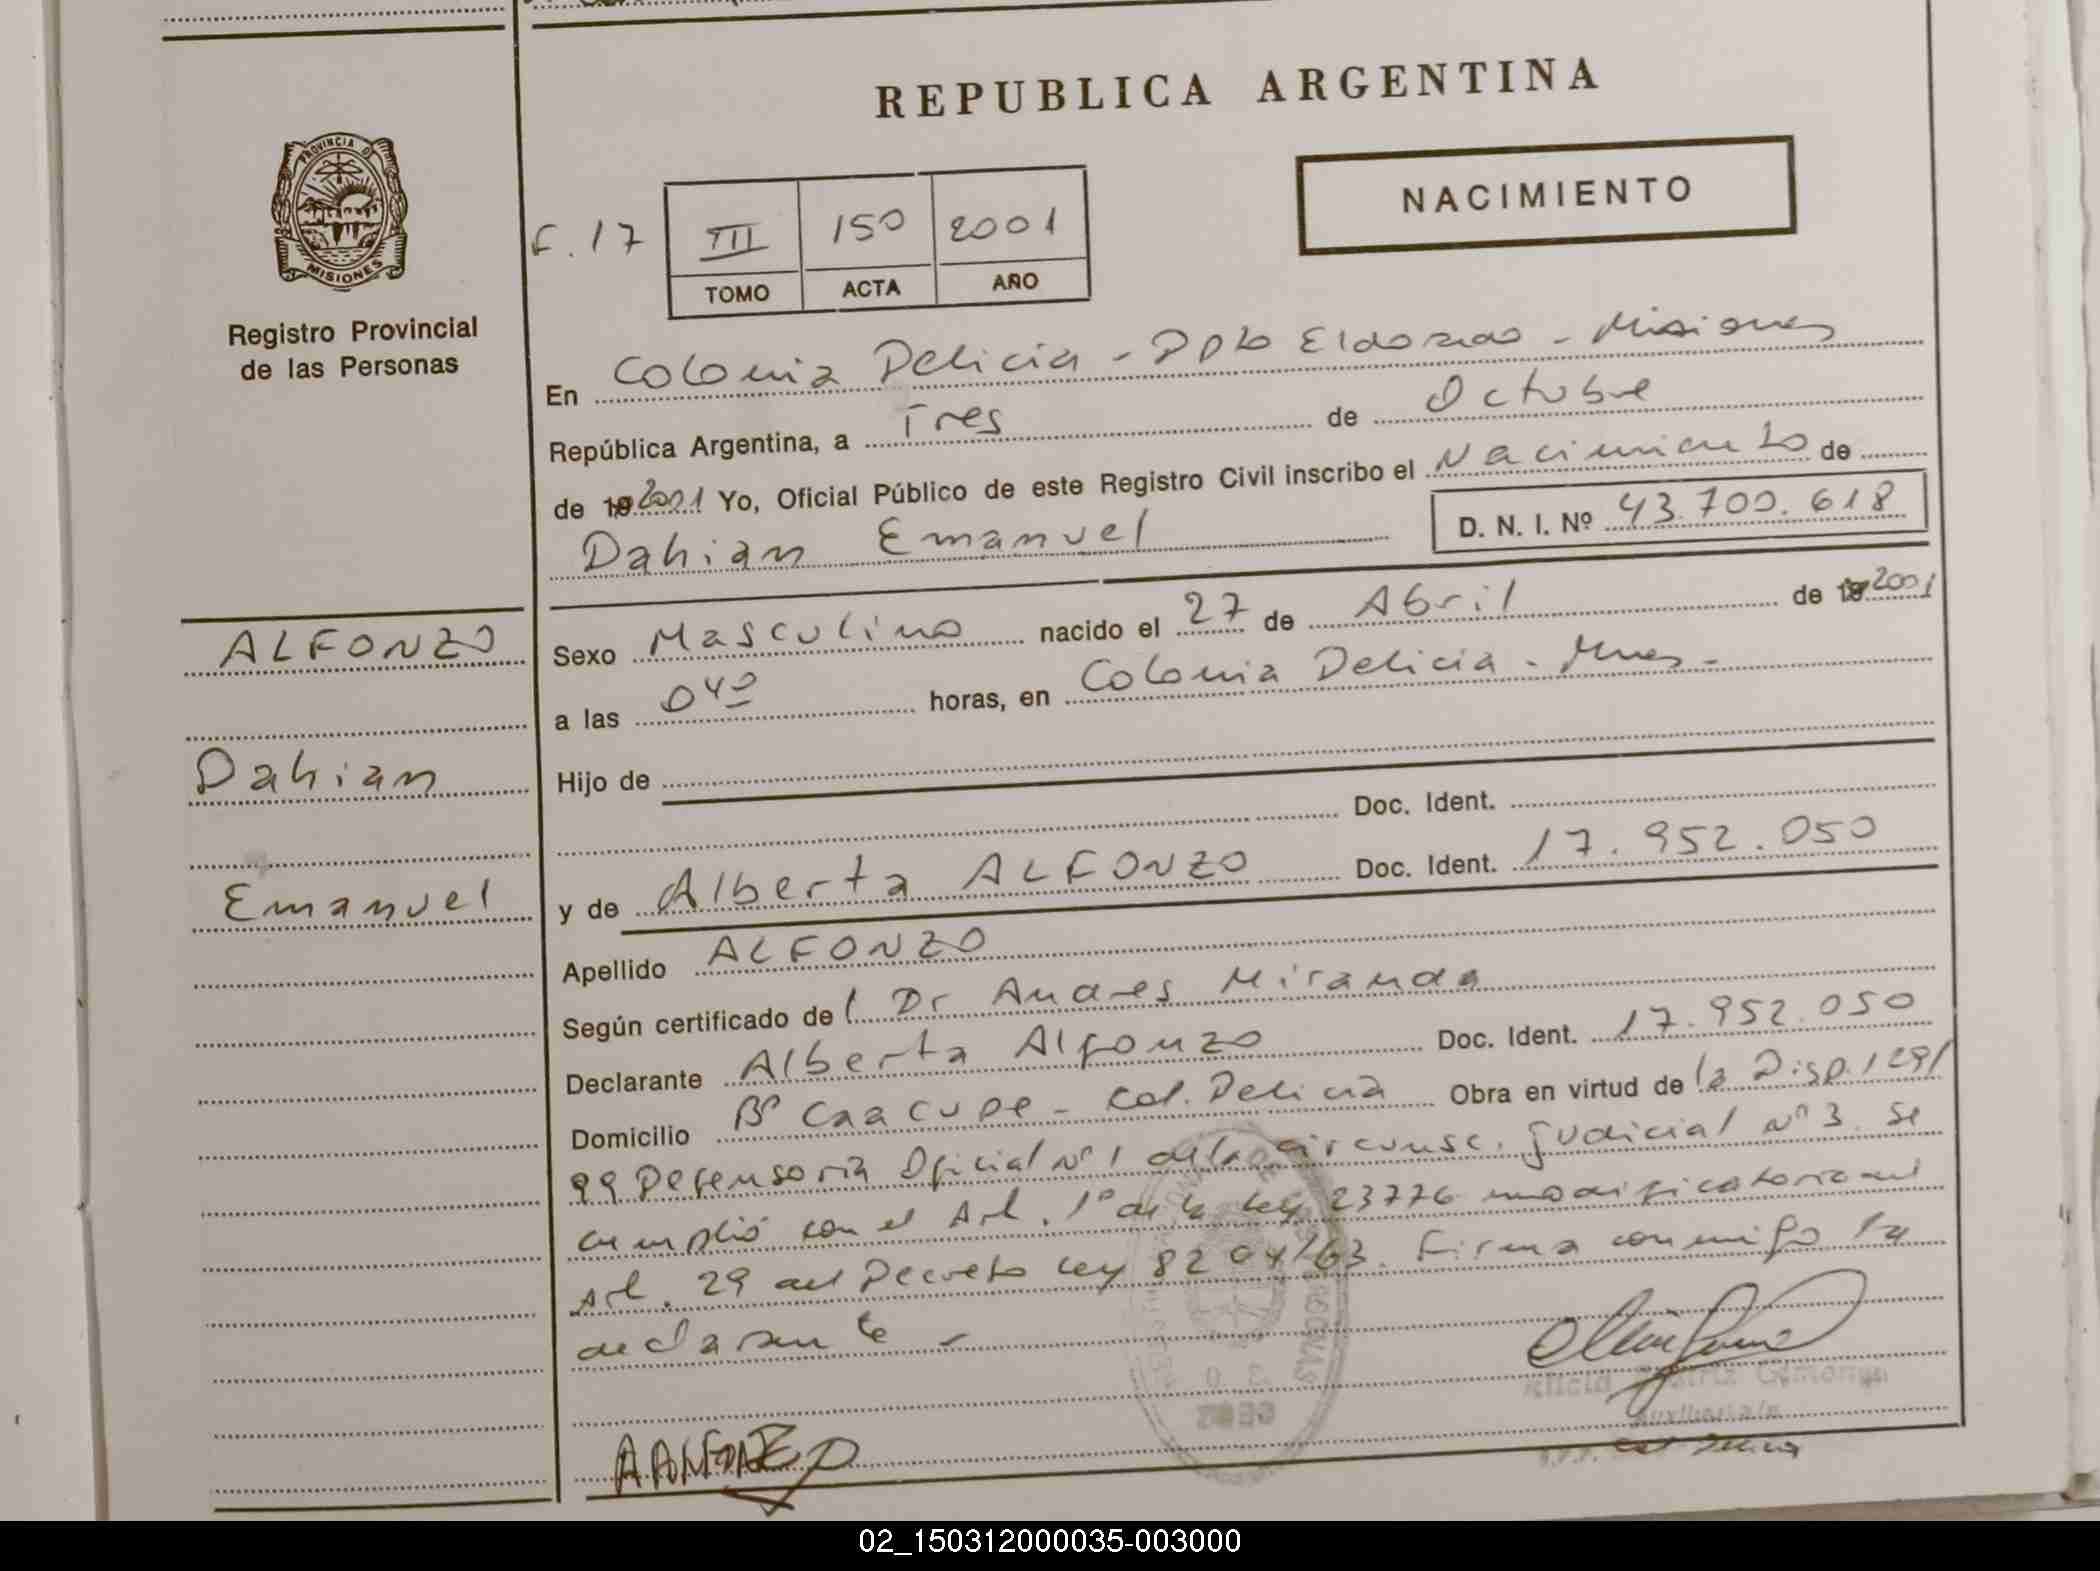 REPUBLICA ARGENTINA
NACIMIENTO
PROVINCIA DE
MISIONES
Registro Provincial
de las Personas
F. 17
III 150 2001
TOMO ACTA AÑO
En Colonia Delicia - Dpto Eldorado - Misiones
República Argentina, a Tres de Octubre
de 19 2001 Yo, Oficial Público de este Registro Civil inscribo el Nacimiento de
Dahian Emanuel D. N. I. Nº 43.700.618
ALFONZO
Dahian
Emanuel
Sexo Masculino nacido el 27 de Abril de 19 2001
a las 04º horas, en Colonia Delicia - Mnes -
Hijo de
Doc. Ident.
y de Alberta ALFONZO Doc. Ident. 17.952.050
Apellido ALFONZO
Según certificado del Dr Andres Miranda
Declarante Alberta Alfonzo Doc. Ident. 17.952.050
Domicilio Bº Caacupe - Col. Delicia Obra en virtud de la Disp. 129/
99 Defensoria Oficial Nº 1 de la circunsc. Judicial Nº 3. Se
cumplió con el Art. 1º de la Ley 23776 modificatoria del
Art. 29 del Decreto Ley 8204/63. Firma conmigo la
declarante -
AALFONZO
Alicia
Auxiliar
Col. Delicia
02_150312000035-003000